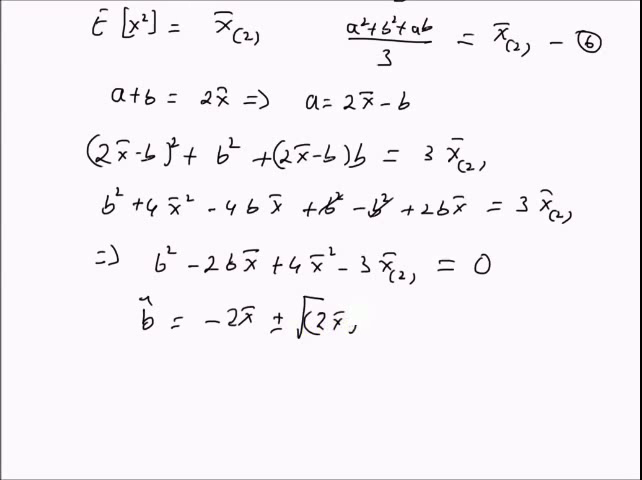 E [x²] = x̄₍₂₎ (a²+b²+ab)/3 = x̄₍₂₎ - ⑥
a+b = 2x̄ => a = 2x̄ - b
(2x̄-b)² + b² + (2x̄-b)b = 3 x̄₍₂₎
b² + 4x̄² - 4bx̄ + b² - b² + 2bx̄ = 3 x̄₍₂₎
=> b² - 2bx̄ + 4x̄² - 3x̄₍₂₎ = 0
b̂ = - 2x̄ ± √(2x̄,